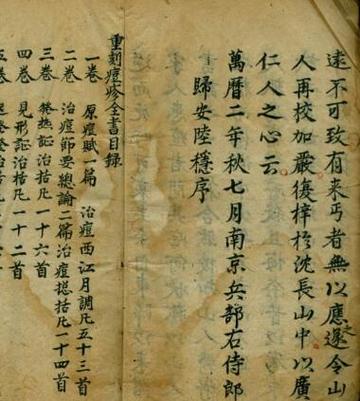 遠不可致有来丐者無以應遂令山
人再校加嚴復梓於沈長山中以廣之
仁人之心云
萬曆二年秋七月南京兵部右侍郎
歸安陸穩序
重刻痘疹全書目録
一卷 原痘賦一篇 治痘西江月調凡五十三首
二卷 治痘節要總論二篇治痘提括凡一十四首
三卷 發熱証治括凡一十六首
四卷 見形証治括凡一十二首
五卷